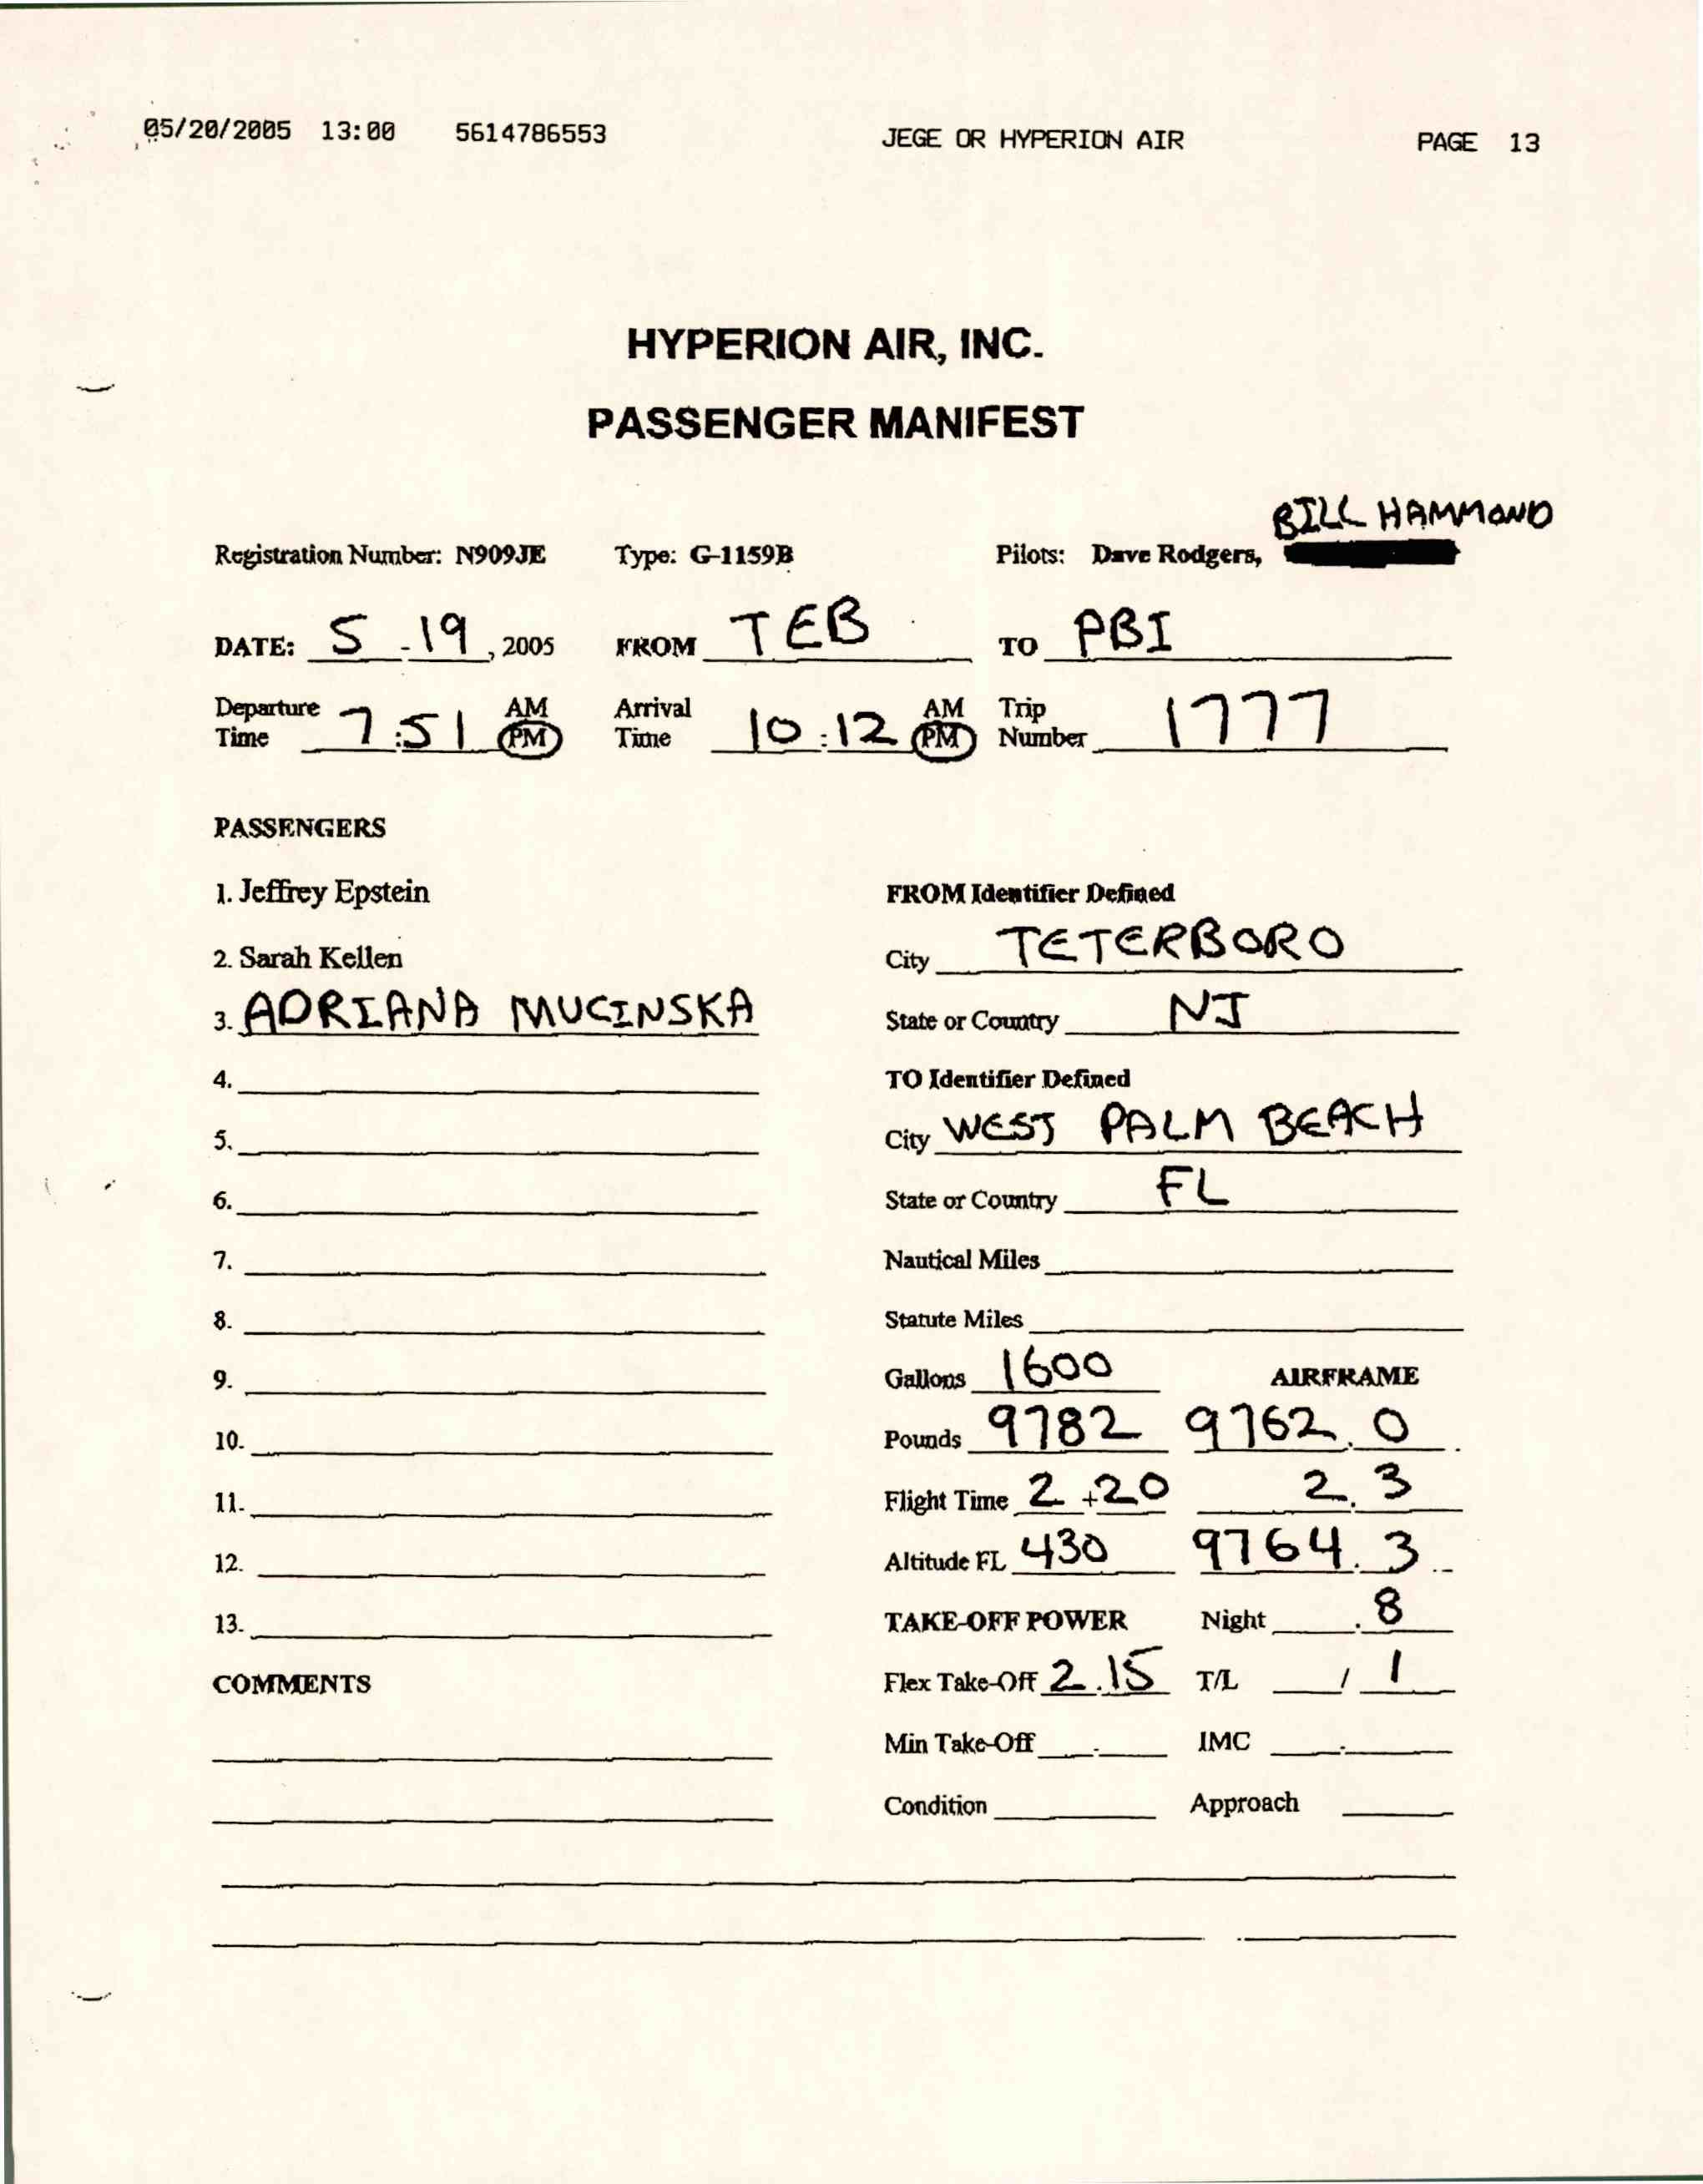 05/20/2005 13:00 5614786553 JEGE OR HYPERION AIR PAGE 13
HYPERION AIR, INC.
PASSENGER MANIFEST
BILL HAMMOND
Registration Number: N909JE Type: G-1159B Pilots: Dave Rodgers,
DATE: 5-19, 2005 FROM TEB TO PBI
Departure Time 7:51 AM PM Arrival Time 10:12 AM PM Trip Number 1777
PASSENGERS
1. Jeffrey Epstein FROM Identifier Defined
2. Sarah Kellen City TETERBORO
3. ADRIANA MUCINSKA State or Country NJ
4. TO Identifier Defined
5. City WEST PALM BEACH
6. State or Country FL
7. Nautical Miles
8. Statute Miles
9. Gallons 1600 AIRFRAME
10. Pounds 9782 9762.0
11. Flight Time 2+20 2.3
12. Altitude FL 430 9764.3
13. TAKE-OFF POWER Night .8
COMMENTS Flex Take-Off 2.15 T/L / 1
Min Take-Off . IMC .
Condition Approach